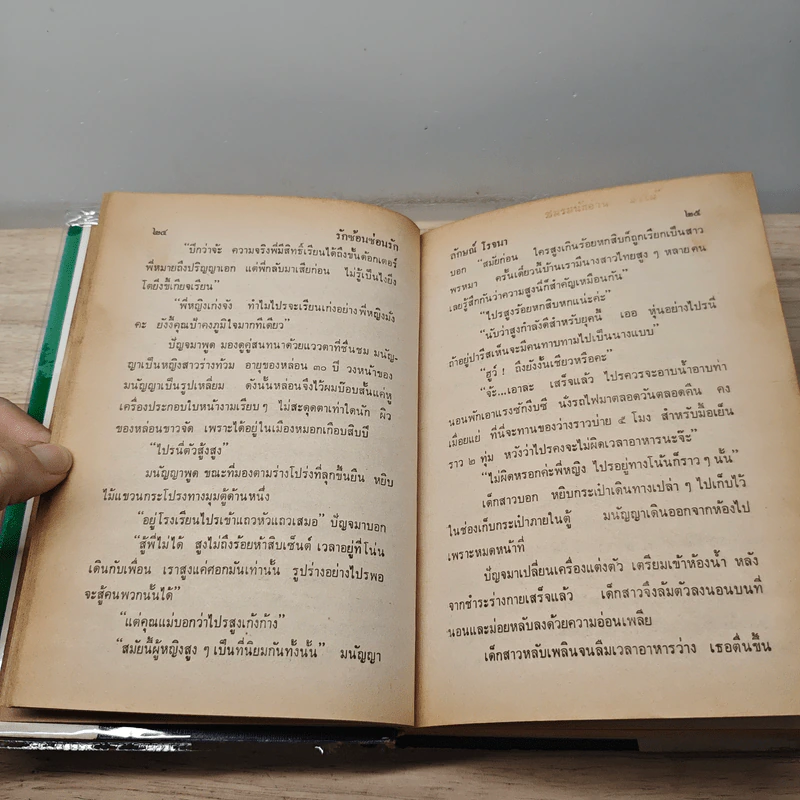 ๒๔ รักซ้อนซ่อนรัก
“บีกว่าจ้ะ ความจริงพี่มีสิทธิ์เรียนได้ถึงขั้นด๊อกเตอร์
พี่หมายถึงปริญญาเอก แต่พี่กลับมาเสียก่อน ไม่รู้เป็นไงยิ่ง
โตยิ่งขี้เกียจเรียน”
“พี่หญิงเก่งจัง ทำไมไปรจะเรียนเก่งอย่างพี่หญิงมั่ง
คะ ยังงี้คุณป้าคงภูมิใจมากทีเดียว”
ปัญจมาพูด มองดูคู่สนทนาด้วยแววตาที่ชื่นชม มนัญ-
ญาเป็นหญิงสาวร่างท้วม อายุของหล่อน ๓๐ ปี วงหน้าของ
มนัญญาเป็นรูปเหลี่ยม ดังนั้นหล่อนจึงไว้ผมบ๊อบสั้นแค่หู
เครื่องประกอบใบหน้างามเรียบ ๆ ไม่สะดุดตาเท่าใดนัก ผิว
ของหล่อนขาวจัด เพราะได้อยู่ในเมืองหมอกเกือบสิบปี
“ไปรนี่ตัวสู้งสูง”
มนัญญาพูด ขณะที่มองตามร่างโปร่งที่ลุกขึ้นยืน หยิบ
ไม้แขวนกระโปรงทางมุมตู้ด้านหนึ่ง
“อยู่โรงเรียนไปรเข้าแถวหัวแถวเสมอ” ปัญจมาบอก
“สู้พี่ไม่ได้ สูงไม่ถึงร้อยห้าสิบเซ็นต์ เวลาอยู่ที่โน่น
เดินกับเพื่อน เราสูงแค่ศอกมันเท่านั้น รูปร่างอย่างไปรพอ
จะสู้คนพวกนั้นได้”
“แต่คุณแม่บอกว่าไปรสูงเก้งก้าง”
“สมัยนี้ผู้หญิงสูง ๆ เป็นที่นิยมกันทั้งนั้น” มนัญญา
ลักษณ์ โรจนา ๒๕
บอก “สมัยก่อน ใครสูงเกินร้อยหกสิบก็ถูกเรียกเป็นสาว
พรหมา ครั้นเดี๋ยวนี้บ้านเรามีนางสาวไทยสูง ๆ หลายคน
เลยรู้สึกกันว่าความสูงนี่ก็สำคัญเหมือนกัน”
“ไปรสูงร้อยหกสิบหกแน่ะค่ะ”
“นับว่าสูงกำลังดีสำหรับยุคนี้ เออ หุ่นอย่างไปรนี่
ถ้าอยู่ปารีสเห็นจะมีคนทาบทามไปเป็นนางแบบ”
“ฮู้ว์ ! ถึงยังงั้นเชียวหรือคะ”
“จ้ะ...เอาละ เสร็จแล้ว ไปรควรจะอาบน้ำอาบท่า
นอนพักเอาแรงซักงีบซี นั่งรถไฟมาตลอดวันตลอดคืน คง
เมื่อยแย่ ที่นี่จะทานของว่างราวบ่าย ๕ โมง สำหรับมื้อเย็น
ราว ๒ ทุ่ม หวังว่าไปรคงจะไม่ผิดเวลาอาหารนะจ๊ะ”
“ไม่ผิดหรอกค่ะพี่หญิง ไปรอยู่ทางโน้นก็ราว ๆ นั้น”
เด็กสาวบอก หยิบกระเป๋าเดินทางเปล่า ๆ ไปเก็บไว้
ในช่องเก็บกระเป๋าภายในตู้ มนัญญาเดินออกจากห้องไป
เพราะหมดหน้าที่
ปัญจมาเปลี่ยนเครื่องแต่งตัว เตรียมเข้าห้องน้ำ หลัง
จากชำระร่างกายเสร็จแล้ว เด็กสาวจึงล้มตัวลงนอนบนที่
นอนและม่อยหลับลงด้วยความอ่อนเพลีย
เด็กสาวหลับเพลินจนลืมเวลาอาหารว่าง เธอตื่นขึ้น